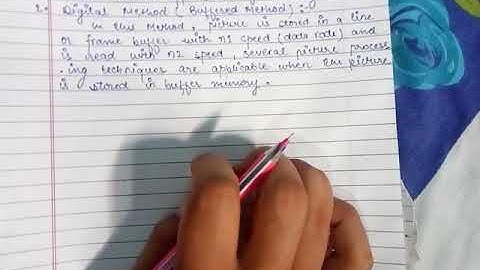 2. Digital Method (Buffered Method) :-
In this Method, picture is stored in a line
or frame buffer with n1 speed (data rate) and
is read with n2 speed, several picture process
-ing techniques are applicable when the picture
is stored in buffer memory.